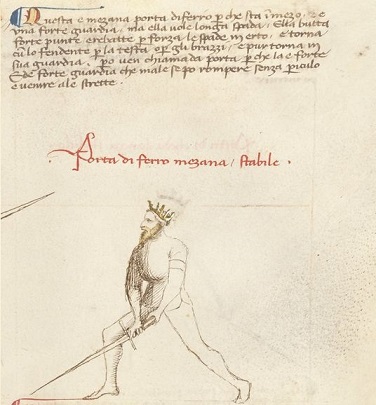 Questa e mezana porta di ferro p che sta i mezo. e e
una forte guardia, ma ella vole longa spada. Ella butta
forte punte e rebatte p forza le spade in erto, e torna
lo fendente p la testa o p gli brazzi, e pur torna in
sua guardia. po ven chiamada porta, p che la e forte
E de forte guardia che male se po rompere senza piculo
e venire ale strette.
Porta di ferro mezana, stabile.